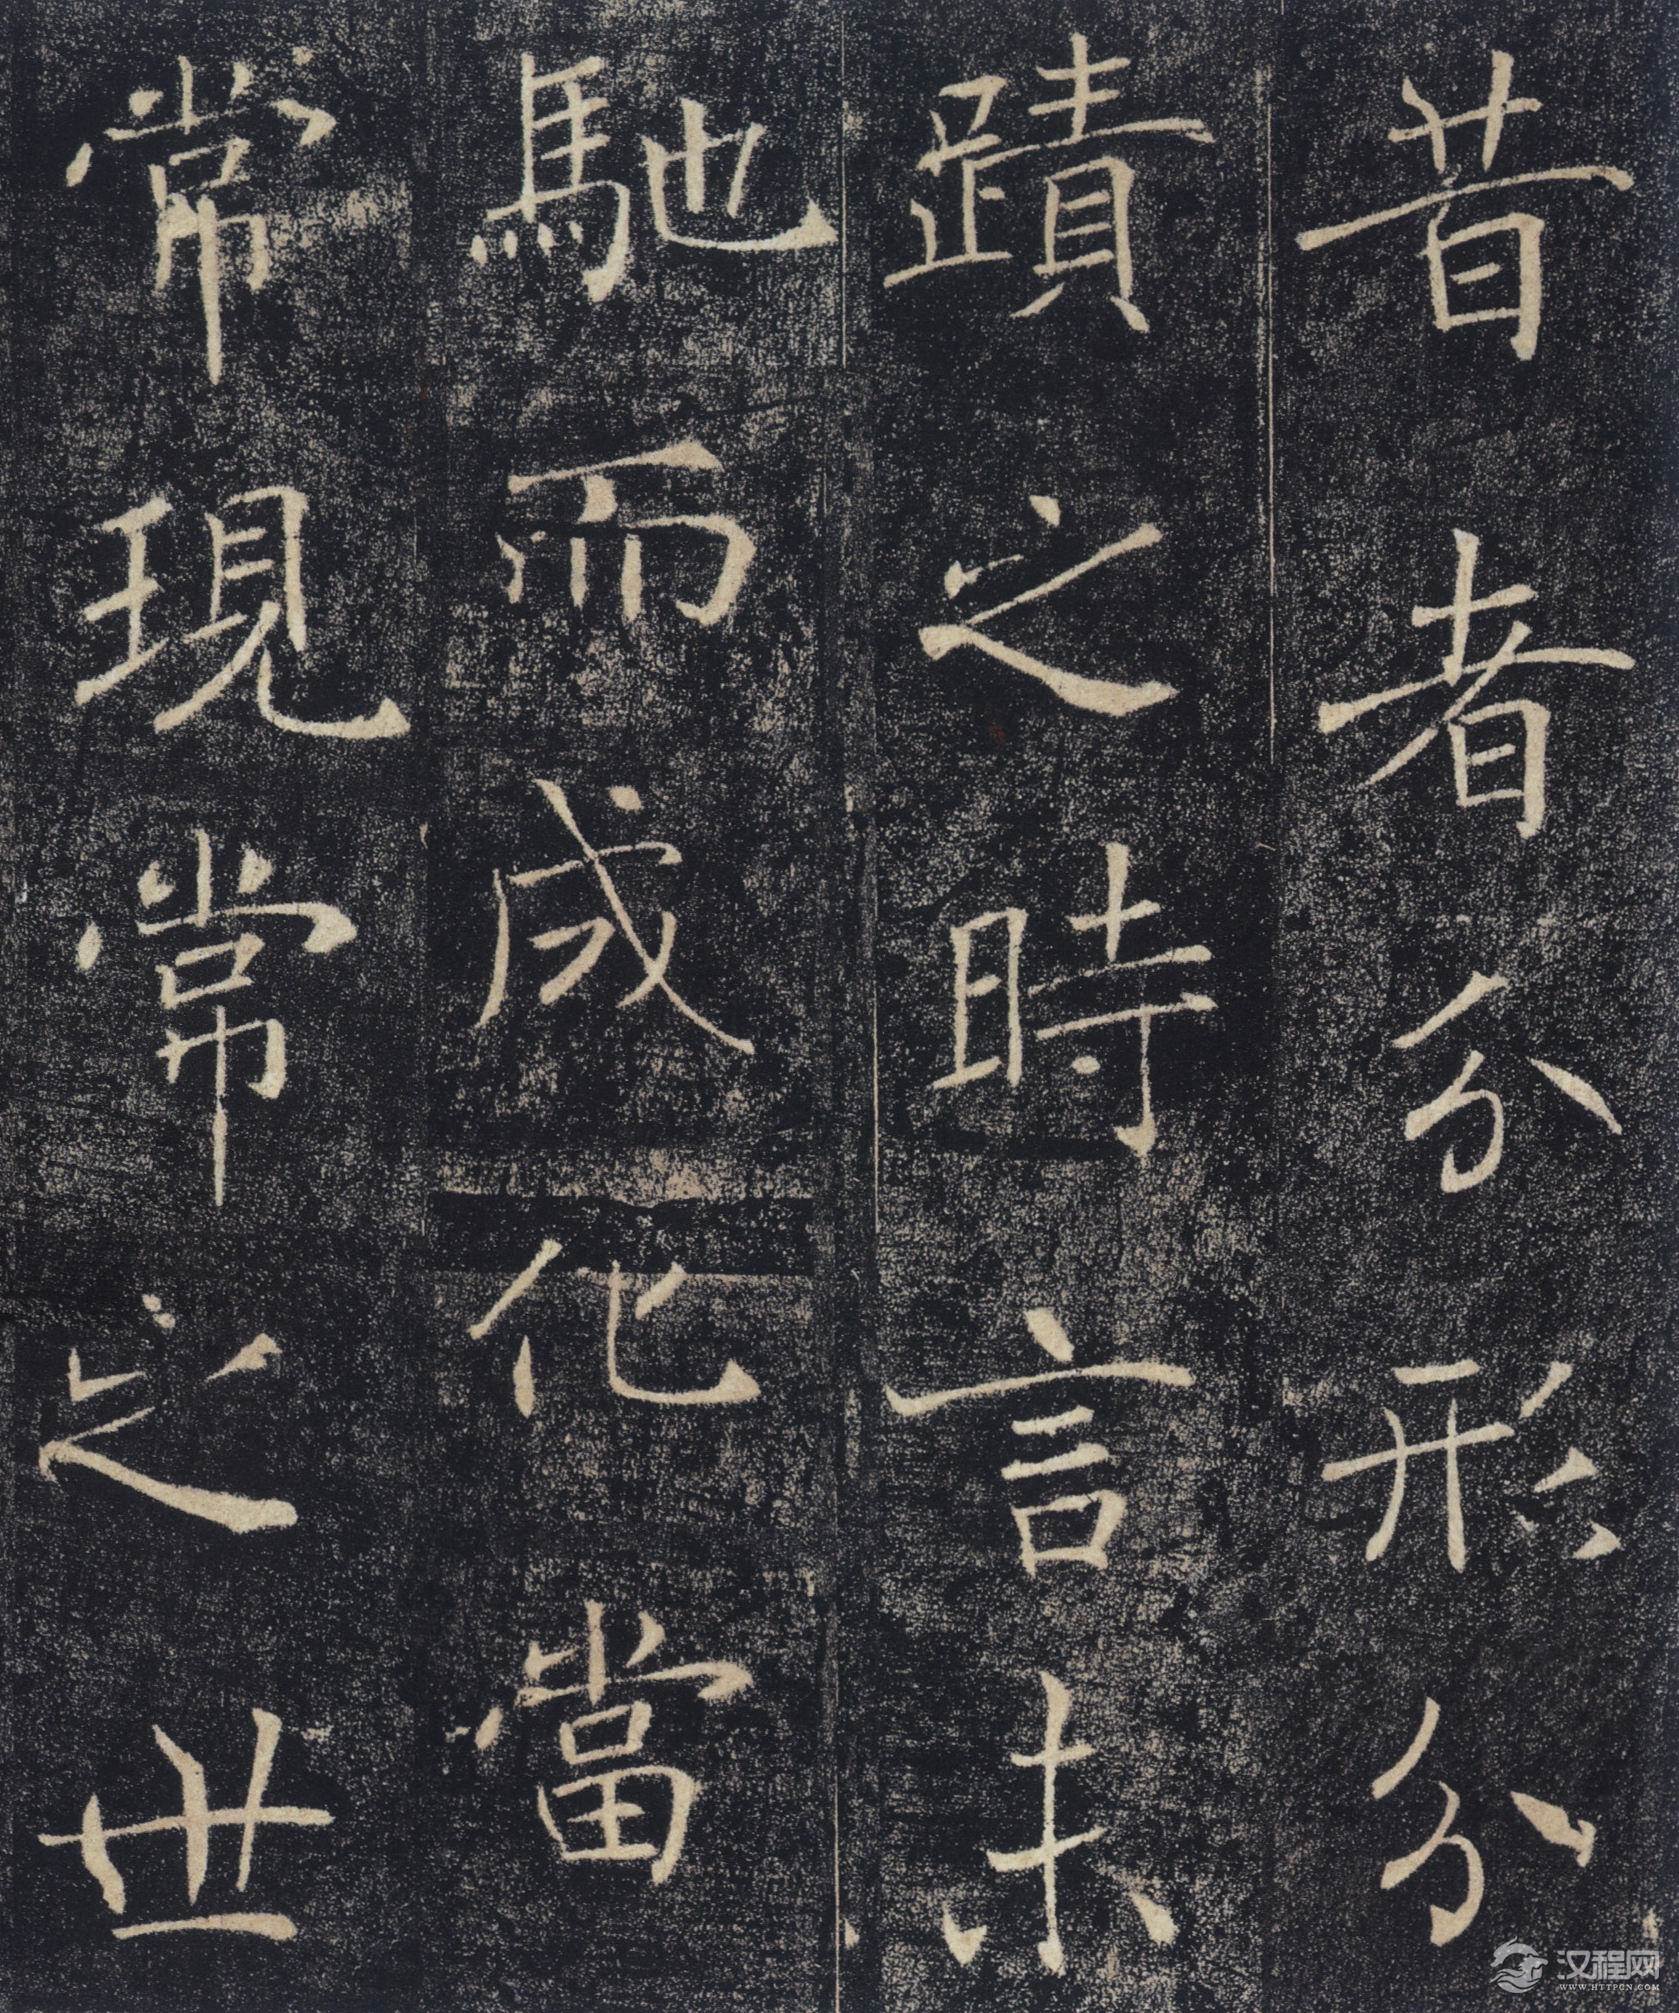 昔者分形分
蹟之時言未
馳而成化當
常現常之世
汉程网
WWW.HTTPCN.COM